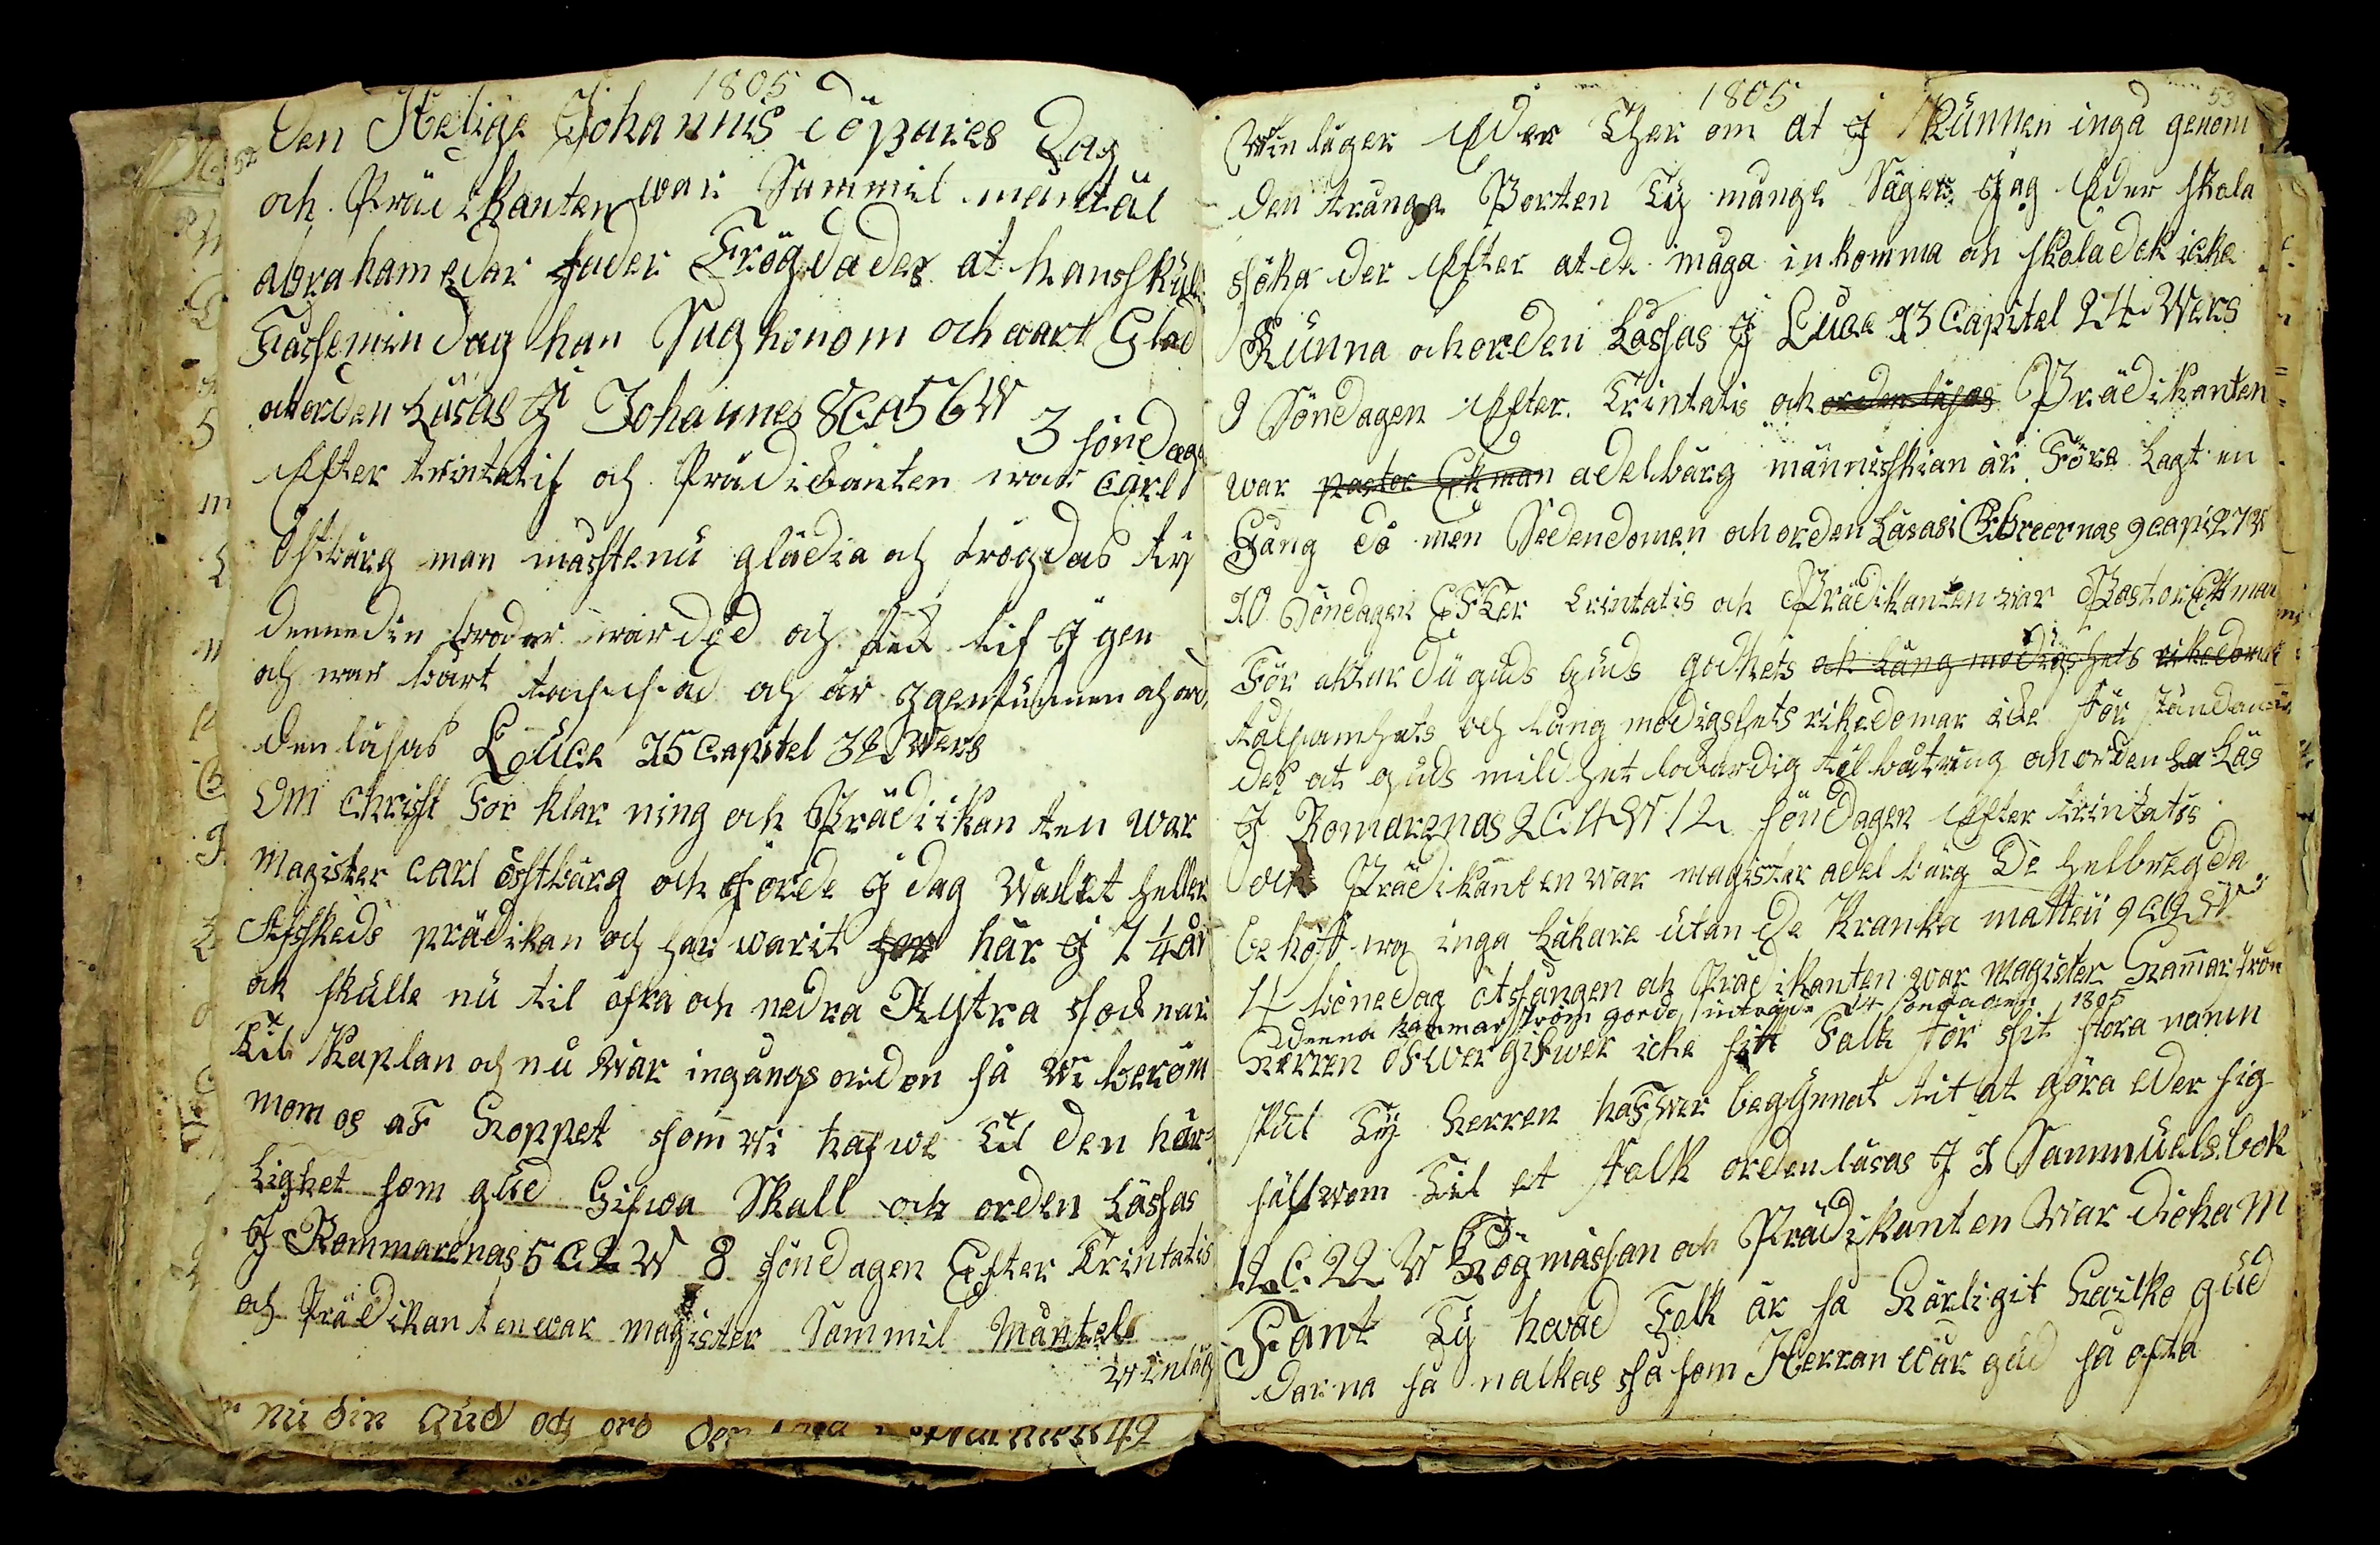 1805
52
Den Helige Johannis döpares Dag
och Prädikanten war Sammil mäntäl
abraham edar fader Frögdades at hans skul
Få se min dag han Sag honom och wart Glad
och orden Läsas J Johannes 8 Ca 56 W
3 söndag
Effter trintatis och Prädikanten war Carl
Östbärg man måste nu glädia och frögdas ty
denne din broder war död och fick lif J gen
och war bårt tappad och är Jgenfunnen och ord
den läsas Luce 15 Capitel 32 Wers
Om Christi For klar ning och Prädikan ten war
Magister Carl östbärg och Jorde J dag
Affskeds prädikan och har warit här J 1 1/4 år
ock skulle nu til öfra och nedra Rystra socknar
Til Kaplan och nu war ingångs orden så wi beröm
mom os af Hoppet som wi hafwe Til den här-
Lighet som gud Gifwa Skall och orden Läsas
J Rommarenas 5 C 2 W 8 söndagen Efter Trintatis
och Prädikanten war magister Sammil Mäntel
winlägg
nu din Gud och ord
49
1805
53
Winläger Eder Ther om at J Kunnen ingå genom
den trånga Porten Ty månge Säger Jag Eder skola
söka der Effter at de måga inkomma och skola dok icke
Kunna och orden Läsas J Luce 13 Capitel 24 Wers
9 Söndagen Effter Trintatis och orden läsas Prädikanten
war pastor Ekman adelbärg människian är Före Lagt en
Gång dö men Sedendomen och orden Läsas i Ebreernas 9 capi 27 W
10 Söndagen Effter trintatis och Prädikanten war Pastor Ekman
För aktar du guds guds godhets och Lång modigshets rikedomar
tålsamhets och lång modigshets rikedomar icke för ståndandes
des at guds mildhet lockar dig till bättring och orden Läs
J Romarenas 2 C 4 W 12 söndagen Effter trintatis
och Prädikanten war magister adelbärg De helbregda
behöffwa inga Läkare utan de kranka matteü 9 C 12 W
4 bönedag åtsången och Prädikanten war magister Hammarström
denna hammarström gorde sinträde 14 söndagen 1805
Herren öfwergifwer icke sitt Falk för sit stora namn
skul Ty Herren haffwer begynnat tit at göra eder sig
sälfwom Til et Falk orden läsas J 1 Sammuels bok
12 C 22 W Högmässan och Prädikanten war
Fant Ty hwad Folk är så Härligit Hwilko gud
darna så nalkas så som Herran wår gud så ofta